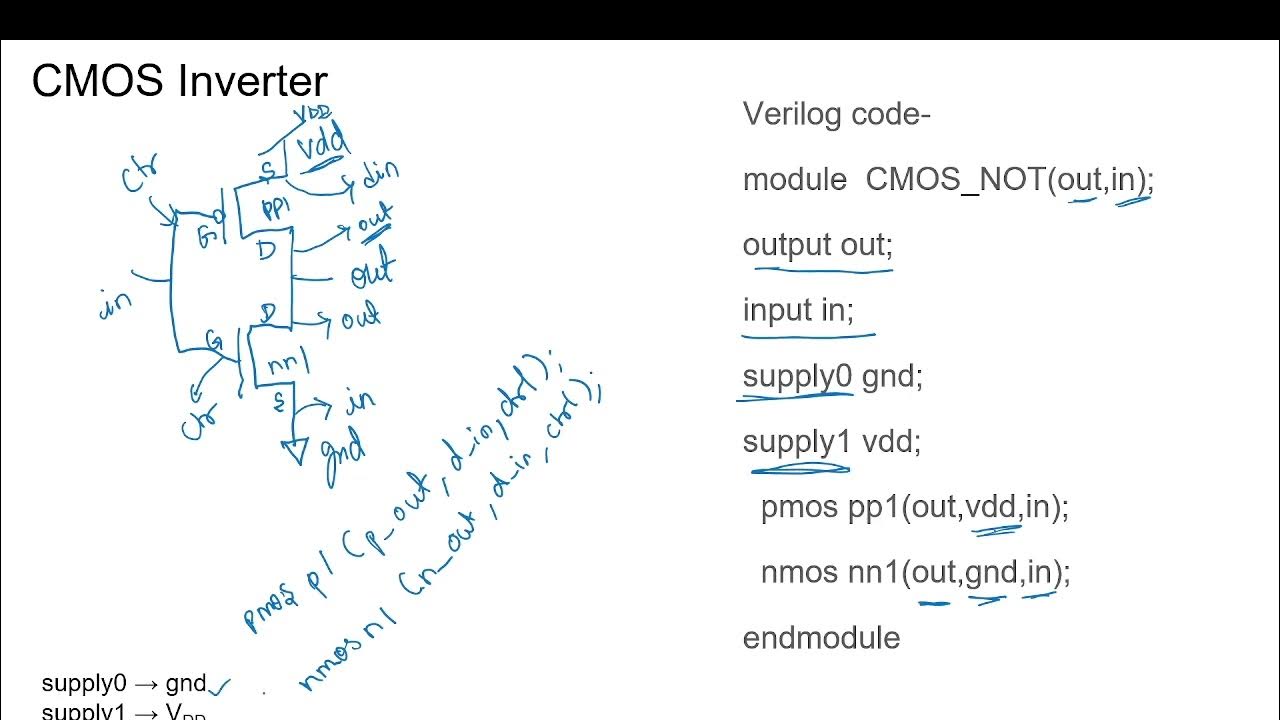 CMOS Inverter
VDD
vdd
Ctr
S
din
pp1
out
G
D
out
in
D
out
G
nn1
S
in
Ctr
gnd
pmos p1 (p_out, d_in, ctrl);
nmos n1 (n_out, d_in, ctrl);
supply0 → gnd
supply1 → VDD
Verilog code-
module CMOS_NOT(out,in);
output out;
input in;
supply0 gnd;
supply1 vdd;
pmos pp1(out,vdd,in);
nmos nn1(out,gnd,in);
endmodule